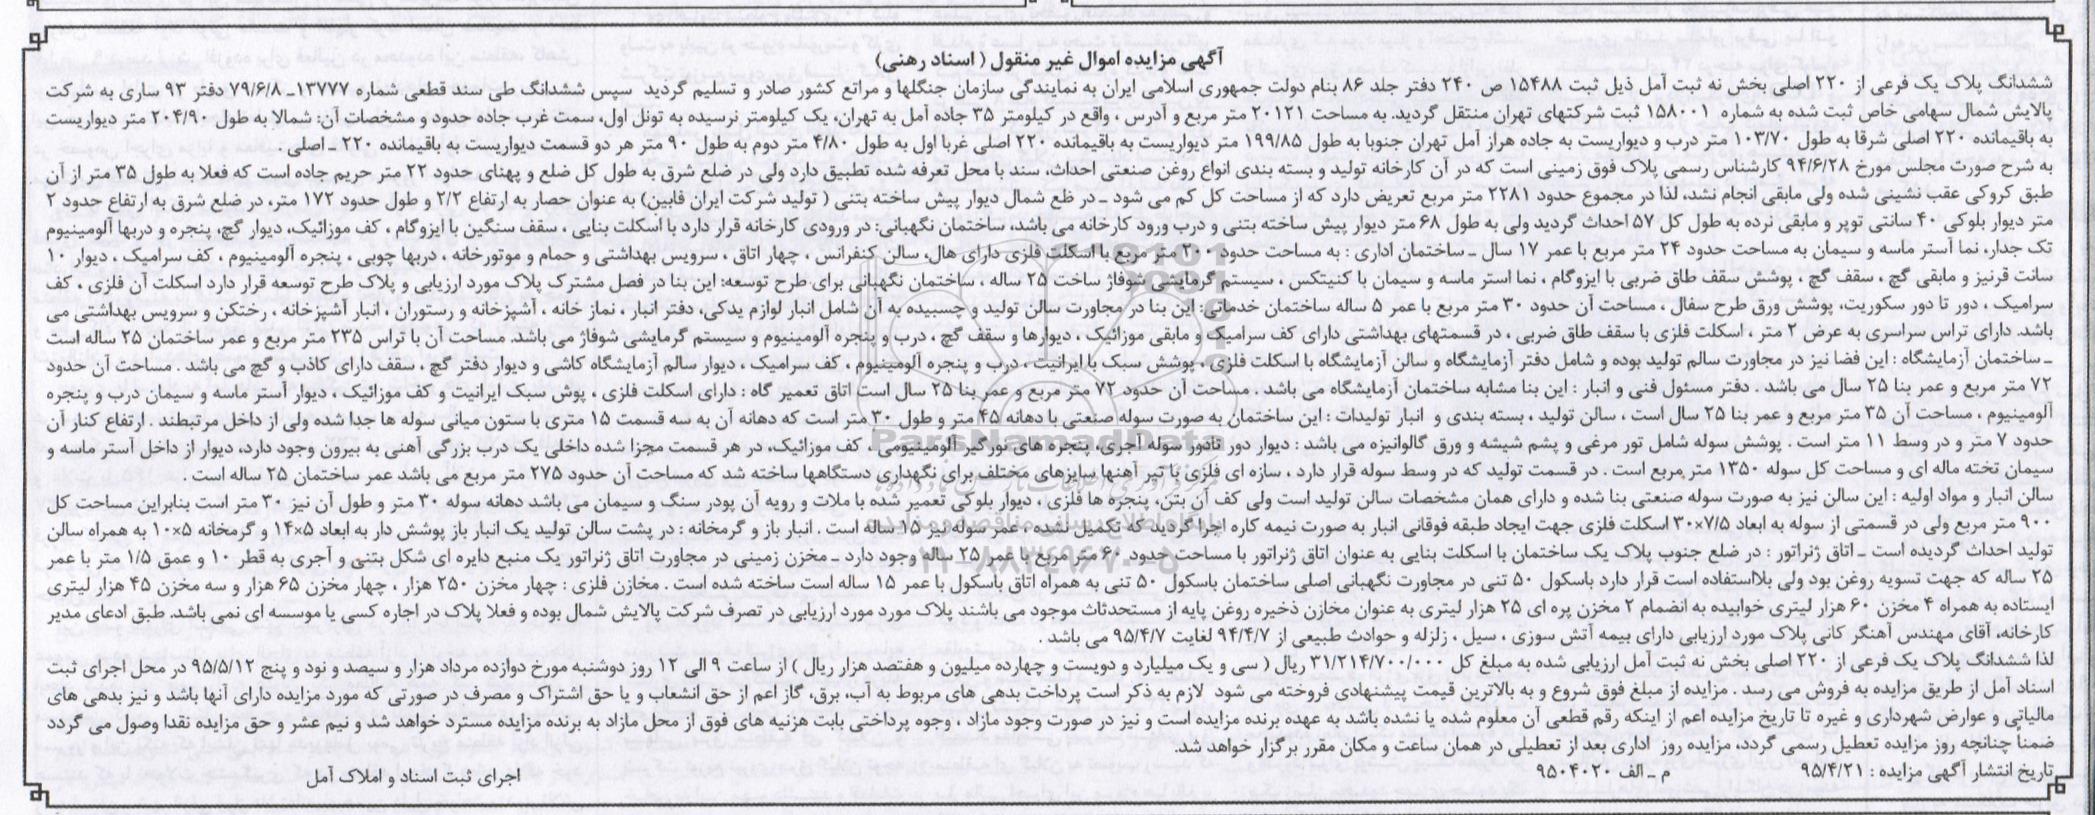 آگهی مزایده اموال غیر منقول ( اسناد رهنی)
ششدانگ پلاک یک فرعی از ۲۲۰ اصلی بخش نه ثبت آمل ذیل ثبت ۱۵۴۸۸ ص ۲۴۰ دفتر جلد ۸۶ بنام دولت جمهوری اسلامی ایران به نمایندگی سازمان جنگلها و مراتع کشور صادر و تسلیم گردید سپس ششدانگ طی سند قطعی شماره ۱۳۷۷۷ـ ۷۹/۶/۸ دفتر ۹۳ ساری به شرکت
پالایش شمال سهامی خاص ثبت شده به شماره ۱۵۸۰۰۱ ثبت شرکتهای تهران منتقل گردید. به مساحت ۲۰۱۲۱ متر مربع و آدرس ، واقع در کیلومتر ۳۵ جاده آمل به تهران، یک کیلومتر نرسیده به تونل اول، سمت غرب جاده حدود و مشخصات آن: شمالا به طول ۲۰۴/۹۰ متر دیواریست
به باقیمانده ۲۲۰ اصلی شرقا به طول ۱۰۳/۷۰ متر درب و دیواریست به جاده هراز آمل تهران جنوبا به طول ۱۹۹/۸۵ متر دیواریست به باقیمانده ۲۲۰ اصلی غربا اول به طول ۴/۸۰ متر دوم به طول ۹۰ متر هر دو قسمت دیواریست به باقیمانده ۲۲۰ ـ اصلی .
به شرح صورت مجلس مورخ ۹۴/۶/۲۸ کارشناس رسمی پلاک فوق زمینی است که در آن کارخانه تولید و بسته بندی انواع روغن صنعتی احداث، سند با محل تعرفه شده تطبیق دارد ولی در ضلع شرق به طول کل ضلع و پهنای حدود ۲۲ متر حریم جاده است که فعلا به طول ۳۵ متر از آن
طبق کروکی عقب نشینی شده ولی مابقی انجام نشد، لذا در مجموع حدود ۲۲۸۱ متر مربع تعریض دارد که از مساحت کل کم می شود ـ در ظع شمال دیوار پیش ساخته بتنی ( تولید شرکت ایران فابین) به عنوان حصار به ارتفاع ۲/۲ و طول حدود ۱۷۲ متر، در ضلع شرق به ارتفاع حدود ۲
متر دیوار بلوکی ۴۰ سانتی توپر و مابقی نرده به طول کل ۵۷ احداث گردید ولی به طول ۶۸ متر دیوار پیش ساخته بتنی و درب ورود کارخانه می باشد، ساختمان نگهبانی: در ورودی کارخانه قرار دارد با اسکلت بنایی ، سقف سنگین با ایزوگام ، کف موزائیک، دیوار گچ، پنجره و دربها آلومینیوم
تک جدار، نما آستر ماسه و سیمان به مساحت حدود ۲۴ متر مربع با عمر ۱۷ سال ـ ساختمان اداری : به مساحت حدود متر مربع با اسکلت فلزی دارای هال، سالن کنفرانس ، چهار اتاق ، سرویس بهداشتی و حمام و موتورخانه ، دربها چوبی ، پنجره آلومینیوم ، کف سرامیک ، دیوار ۱۰
سانت قرنیز و مابقی گچ ، سقف گچ ، پوشش سقف طاق ضربی با ایزوگام ، نما استر ماسه و سیمان با کنیتکس ، سیستم گرمایش شوفاژ ساخت ۲۵ ساله ، ساختمان نگهبانی برای طرح توسعه: این بنا در فصل مشترک پلاک مورد ارزیابی و پلاک طرح توسعه قرار دارد اسکلت آن فلزی ، کف
سرامیک ، دور تا دور سکوریت، پوشش ورق طرح سفال ، مساحت آن حدود ۳۰ متر مربع با عمر ۵ ساله ساختمان خدماتی: این بنا در مجاورت سالن تولید و چسبیده به آن شامل انبار لوازم یدکی، دفتر انبار ، نماز خانه ، آشپزخانه و رستوران ، انبار آشپزخانه ، رختکن و سرویس بهداشتی می
باشد. دارای تراس سراسری به عرض ۲ متر ، اسکلت فلزی با سقف طاق ضربی ، در قسمتهای بهداشتی دارای کف سرامیک و مابقی موزائیک ، دیوارها و سقف گچ ، درب و پنجره آلومینیوم و سیستم گرمایشی شوفاژ می باشد. مساحت آن با تراس ۲۳۵ متر مربع و عمر ساختمان ۲۵ ساله است
ـ ساختمان آزمایشگاه : این فضا نیز در مجاورت سالم تولید بوده و شامل دفتر آزمایشگاه و سالن آزمایشگاه با اسکلت فلزی ، پوشش سبک با ایرانیت ، درب و پنجره آلومینیوم ، کف سرامیک ، دیوار سالم آزمایشگاه کاشی و دیوار دفتر گچ ، سقف دارای کاذب و گچ می باشد . مساحت آن حدود
۷۲ متر مربع و عمر بنا ۲۵ سال می باشد . دفتر مسئول فنی و انبار : این بنا مشابه ساختمان آزمایشگاه می باشد . مساحت آن حدود ۷۲ متر مربع و عمر بنا ۲۵ سال است اتاق تعمیر گاه : دارای اسکلت فلزی ، پوش سبک ایرانیت و کف موزائیک ، دیوار آستر ماسه و سیمان درب و پنجره
آلومینیوم ، مساحت آن ۳۵ متر مربع و عمر بنا ۲۵ سال است ، سالن تولید ، بسته بندی و انبار تولیدات : این ساختمان به صورت سوله صنعتی با دهانه ۴۵ متر و طول ۳۰ متر است که دهانه آن به سه قسمت ۱۵ متری با ستون میانی سوله ها جدا شده ولی از داخل مرتبطند . ارتفاع کنار آن
حدود ۷ متر و در وسط ۱۱ متر است . پوشش سوله شامل تور مرغی و پشم شیشه و ورق گالوانیزه می باشد : دیوار دور تادور سوله آجری، پنجره های نورگیر آلومینیومی ، کف موزائیک، در هر قسمت مجزا شده داخلی یک درب بزرگی آهنی به بیرون وجود دارد، دیوار از داخل آستر ماسه و
سیمان تخته ماله ای و مساحت کل سوله ۱۳۵۰ متر مربع است . در قسمت تولید که در وسط سوله قرار دارد ، سازه ای فلزی با تیر آهنها سایزهای مختلف برای نگهداری دستگاهها ساخته شد که مساحت آن حدود ۲۷۵ متر مربع می باشد عمر ساختمان ۲۵ ساله است .
سالن انبار و مواد اولیه : این سالن نیز به صورت سوله صنعتی بنا شده و دارای همان مشخصات سالن تولید است ولی کف آن بتن ، پنجره ها فلزی ، دیوار بلوکی تعمیر شده با ملات و رویه آن پودر سنگ و سیمان می باشد دهانه سوله ۳۰ متر و طول آن نیز ۳۰ متر است بنابراین مساحت کل
۹۰۰ متر مربع ولی در قسمتی از سوله به ابعاد ۷/۵×۳۰ اسکلت فلزی جهت ایجاد طبقه فوقانی انبار به صورت نیمه کاره اجرا گردید که تکمیل نشده ، عمر سوله نیز ۱۵ ساله است . انبار باز و گرمخانه : در پشت سالن تولید یک انبار باز پوشش دار به ابعاد ۵×۱۴ و گرمخانه ۵×۱۰ به همراه سالن
تولید احداث گردیده است ـ اتاق ژنراتور : در ضلع جنوب پلاک یک ساختمان با اسکلت بنایی به عنوان اتاق ژنراتور با مساحت حدود ۶۰ متر مربع با عمر ۲۵ ساله وجود دارد ـ مخزن زمینی در مجاورت اتاق ژنراتور یک منبع دایره ای شکل بتنی و آجری به قطر ۱۰ و عمق ۱/۵ متر با عمر
۲۵ ساله که جهت تسویه روغن بود ولی بلااستفاده است قرار دارد باسکول ۵۰ تنی در مجاورت نگهبانی اصلی ساختمان باسکول ۵۰ تنی به همراه اتاق باسکول با عمر ۱۵ ساله است ساخته شده است . مخازن فلزی : چهار مخزن ۲۵۰ هزار ، چهار مخزن ۶۵ هزار و سه مخزن ۴۵ هزار لیتری
ایستاده به همراه ۴ مخزن ۶۰ هزار لیتری خوابیده به انضمام ۲ مخزن پره ای ۲۵ هزار لیتری به عنوان مخازن ذخیره روغن پایه از مستحدثات موجود می باشند پلاک مورد مورد ارزیابی در تصرف شرکت پالایش شمال بوده و فعلا پلاک در اجاره کسی یا موسسه ای نمی باشد. طبق ادعای مدیر
کارخانه، آقای مهندس آهنگر کانی پلاک مورد ارزیابی دارای بیمه آتش سوزی ، سیل ، زلزله و حوادث طبیعی از ۹۴/۴/۷ لغایت ۹۵/۴/۷ می باشد .
لذا ششدانگ پلاک یک فرعی از ۲۲۰ اصلی بخش نه ثبت آمل ارزیابی شده به مبلغ کل ۳۱/۲۱۴/۷۰۰/۰۰۰ ریال ( سی و یک میلیارد و دویست و چهارده میلیون و هفتصد هزار ریال ) از ساعت ۹ الی ۱۲ روز دوشنبه مورخ دوازده مرداد هزار و سیصد و نود و پنج ۹۵/۵/۱۲ در محل اجرای ثبت
اسناد آمل از طریق مزایده به فروش می رسد . مزایده از مبلغ فوق شروع و به بالاترین قیمت پیشنهادی فروخته می شود لازم به ذکر است پرداخت بدهی های مربوط به آب، برق، گاز اعم از حق انشعاب و یا حق اشتراک و مصرف در صورتی که مورد مزایده دارای آنها باشد و نیز بدهی های
مالیاتی و عوارض شهرداری و غیره تا تاریخ مزایده اعم از اینکه رقم قطعی آن معلوم شده یا نشده باشد به عهده برنده مزایده است و نیز در صورت وجود مازاد ، وجوه پرداختی بابت هزینه های فوق از محل مازاد به برنده مزایده مسترد خواهد شد و نیم عشر و حق مزایده نقدا وصول می گردد
ضمناً چنانچه روز مزایده تعطیل رسمی گردد، مزایده روز اداری بعد از تعطیلی در همان ساعت و مکان مقرر برگزار خواهد شد.
تاریخ انتشار آگهی مزایده : ۹۵/۴/۲۱ م ـ الف ۹۵۰۴۰۲۰ اجرای ثبت اسناد و املاک آمل
ParsNamadData
۰۲۱-۸۸۳۴۹۶۷۰-۵